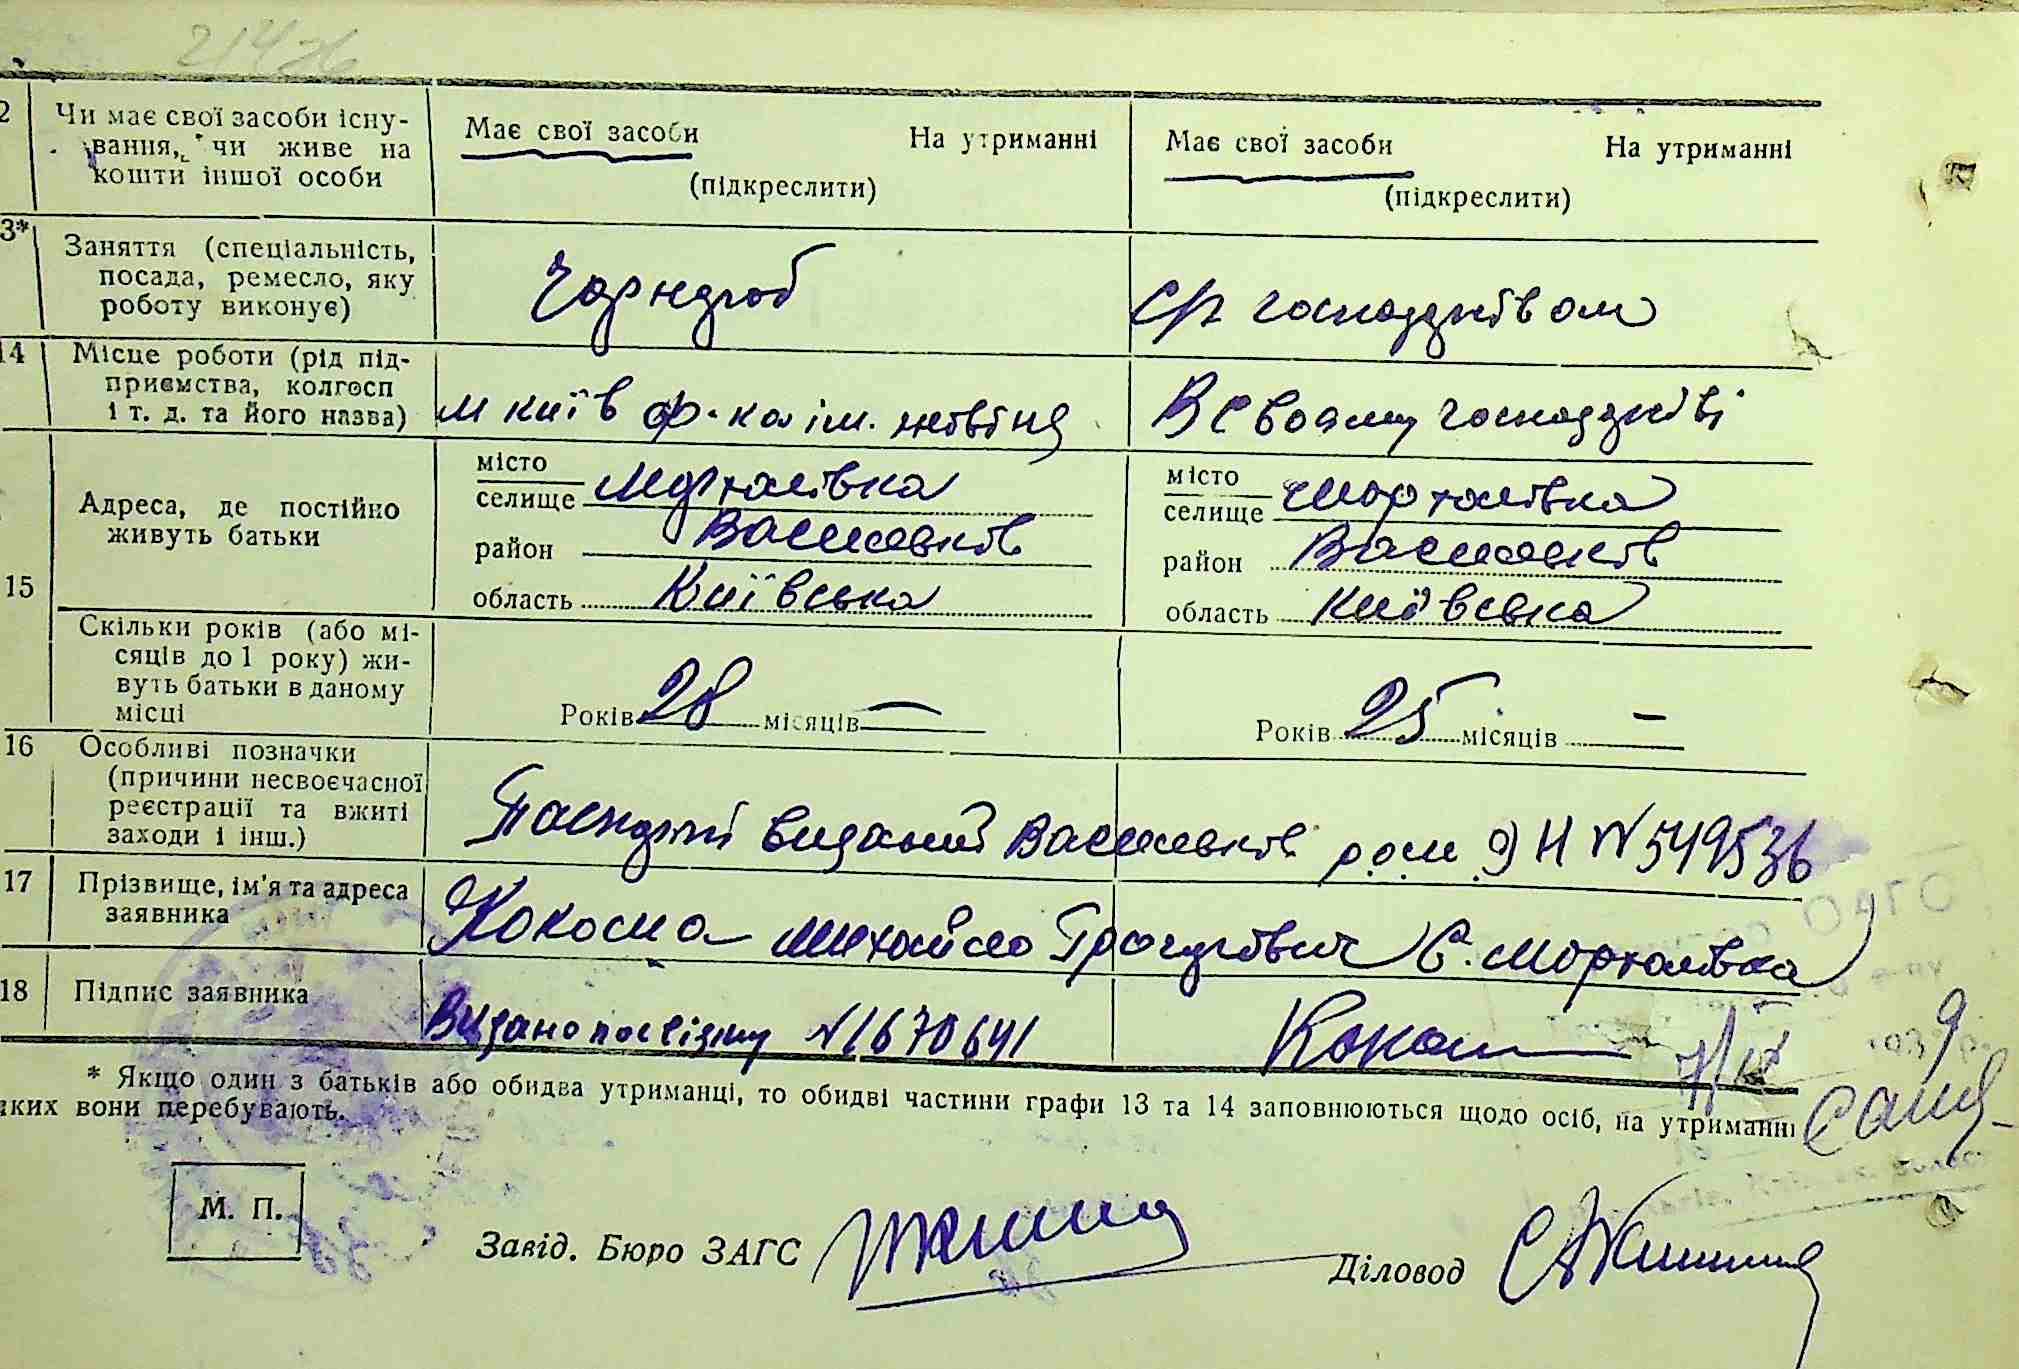 2
Чи має свої засоби існу-
вання, чи живе на
кошти іншої особи
Має свої засоби На утриманні
(підкреслити)
Має свої засоби На утриманні
(підкреслити)
3*
Заняття (спеціальність,
посада, ремесло, яку
роботу виконує)
Чорнороб
с/г господарством
14
Місце роботи (рід під-
приємства, колгосп
і т. д. та його назва)
м Київ
В своєму господарстві
15
Адреса, де постійно
живуть батьки
місто
селище Мархалівка
район Васильків
область Київська
місто
селище Мархалівка
район Васильків
область Київська
Скільки років (або мі-
сяців до 1 року) жи-
вуть батьки в даному
місці
Років 28 місяців —
Років 25 місяців —
16
Особливі позначки
(причини несвоєчасної
реєстрації та вжиті
заходи і інш.)
Паспорт виданий Васильків р.о.м. N 549536
17
Прізвище, ім'я та адреса
заявника
Михайло с. Мархалівка
18
Підпис заявника
Видано посвідку N 1670641
* Якщо один з батьків або обидва утриманці, то обидві частини графи 13 та 14 заповнюються щодо осіб, на утриманні
яких вони перебувають.
М. П.
Завід. Бюро ЗАГС
Діловод